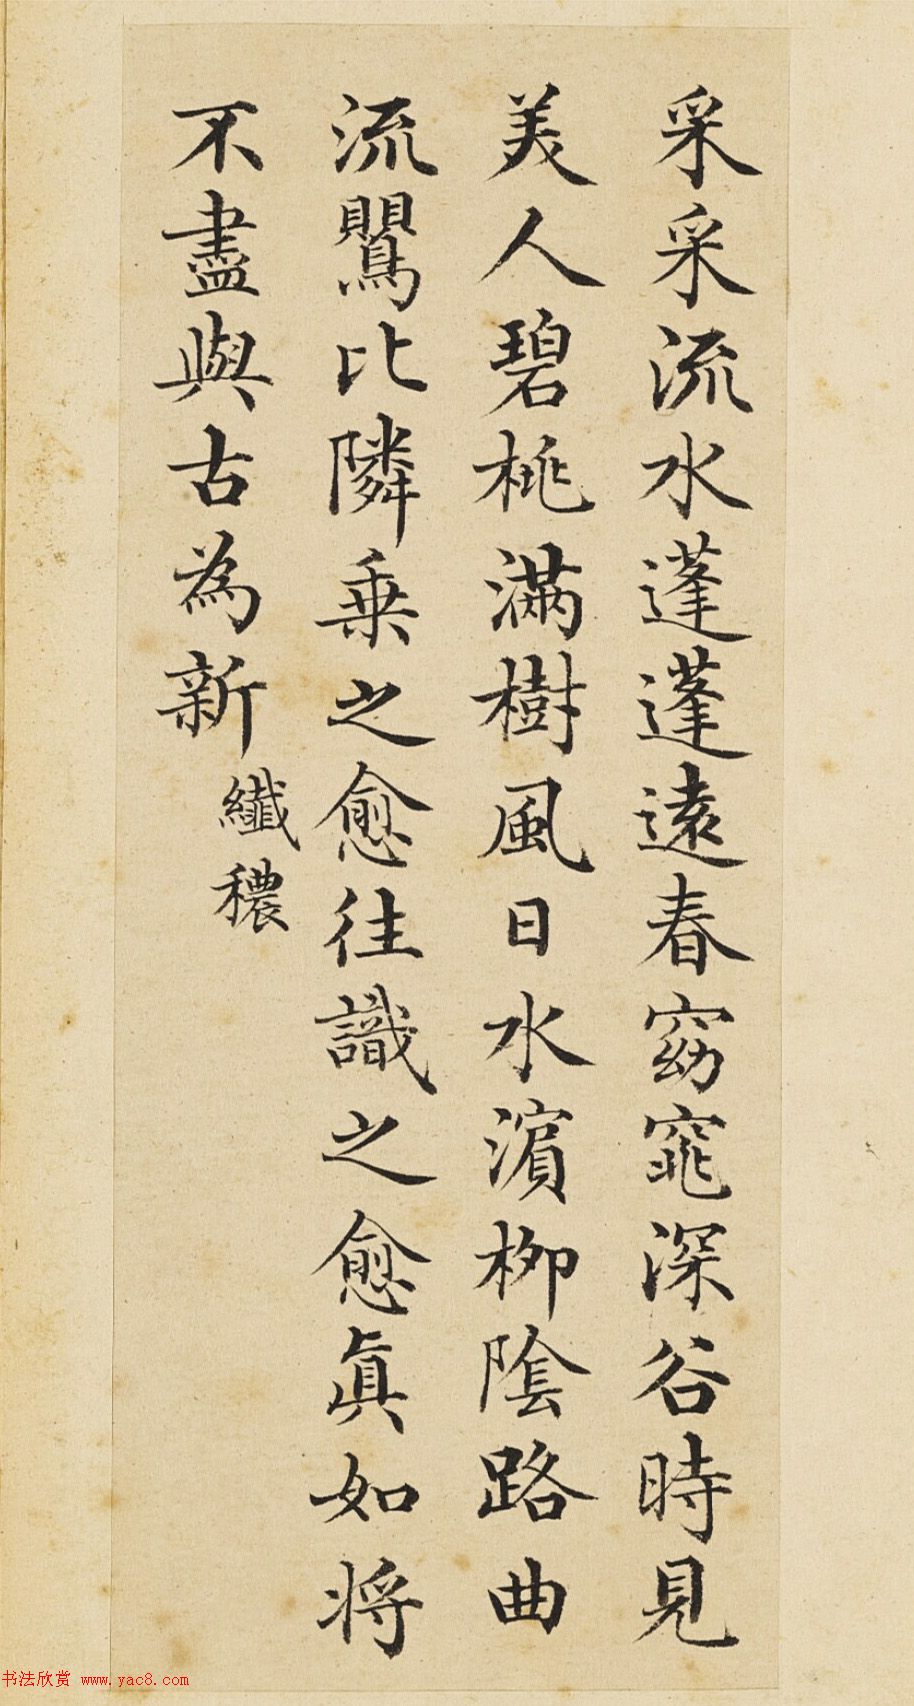 采采流水蓬蓬遠春窈窕深谷時見
美人碧桃滿樹風日水濵栁陰路曲
流鸎比隣乗之愈往識之愈眞如将
不盡與古為新
纖穠
书法欣赏 www.yac8.com